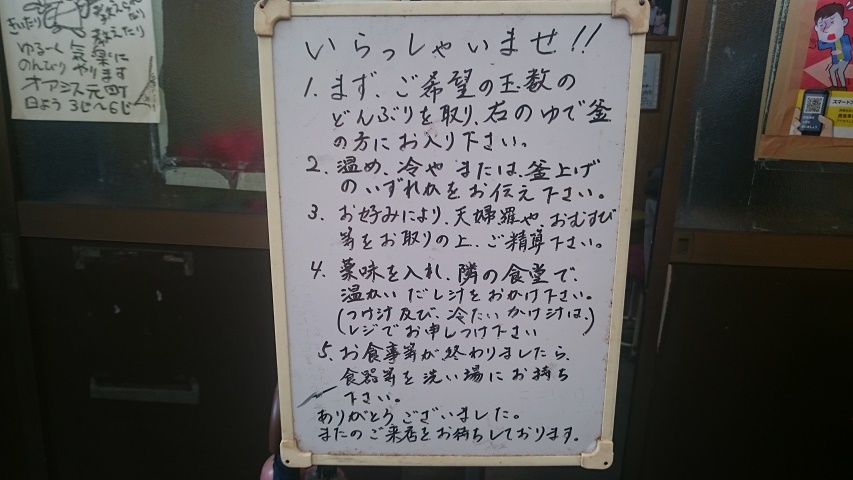 いらっしゃいませ!!
1. まず、ご希望の玉数の
どんぶりを取り、右のゆで釜
の方にお入り下さい。
2. 温め、冷や または、釜上げ
のいずれかをお伝え下さい。
3. お好みにより、天婦羅や、おむすび
等をお取りの上、ご精算下さい。
4. 薬味を入れ、隣の食堂で、
温かいだし汁をおかけ下さい。
(つけ汁及び、冷たいかけ汁は、)
(レジでお申しつけ下さい)
5. お食事等が終わりましたら、
食器等を洗い場にお持ち
下さい。
ありがとうございました。
またのご来店をお待ちしております。
ゆる〜く気楽に
のんびりやります
オアシス元町
日よう3じ〜6じ